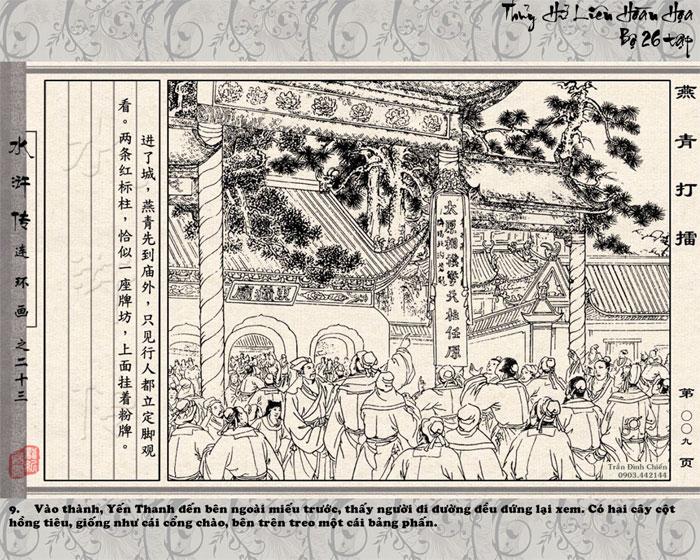 Thủy Hử Liên Hoàn Họa
Bộ 26 tập
燕青打擂
第〇〇九页
进了城，燕青先到庙外，只见行人都立定脚观
看。两条红标柱，恰似一座牌坊，上面挂着粉牌。
水浒传连环画之二十三
太原相撲擎天柱任原
Trần Đình Chiến
0903.442144
9. Vào thành, Yến Thanh đến bên ngoài miếu trước, thấy người đi đường đều đứng lại xem. Có hai cây cột
hồng tiêu, giống như cái cổng chào, bên trên treo một cái bảng phấn.